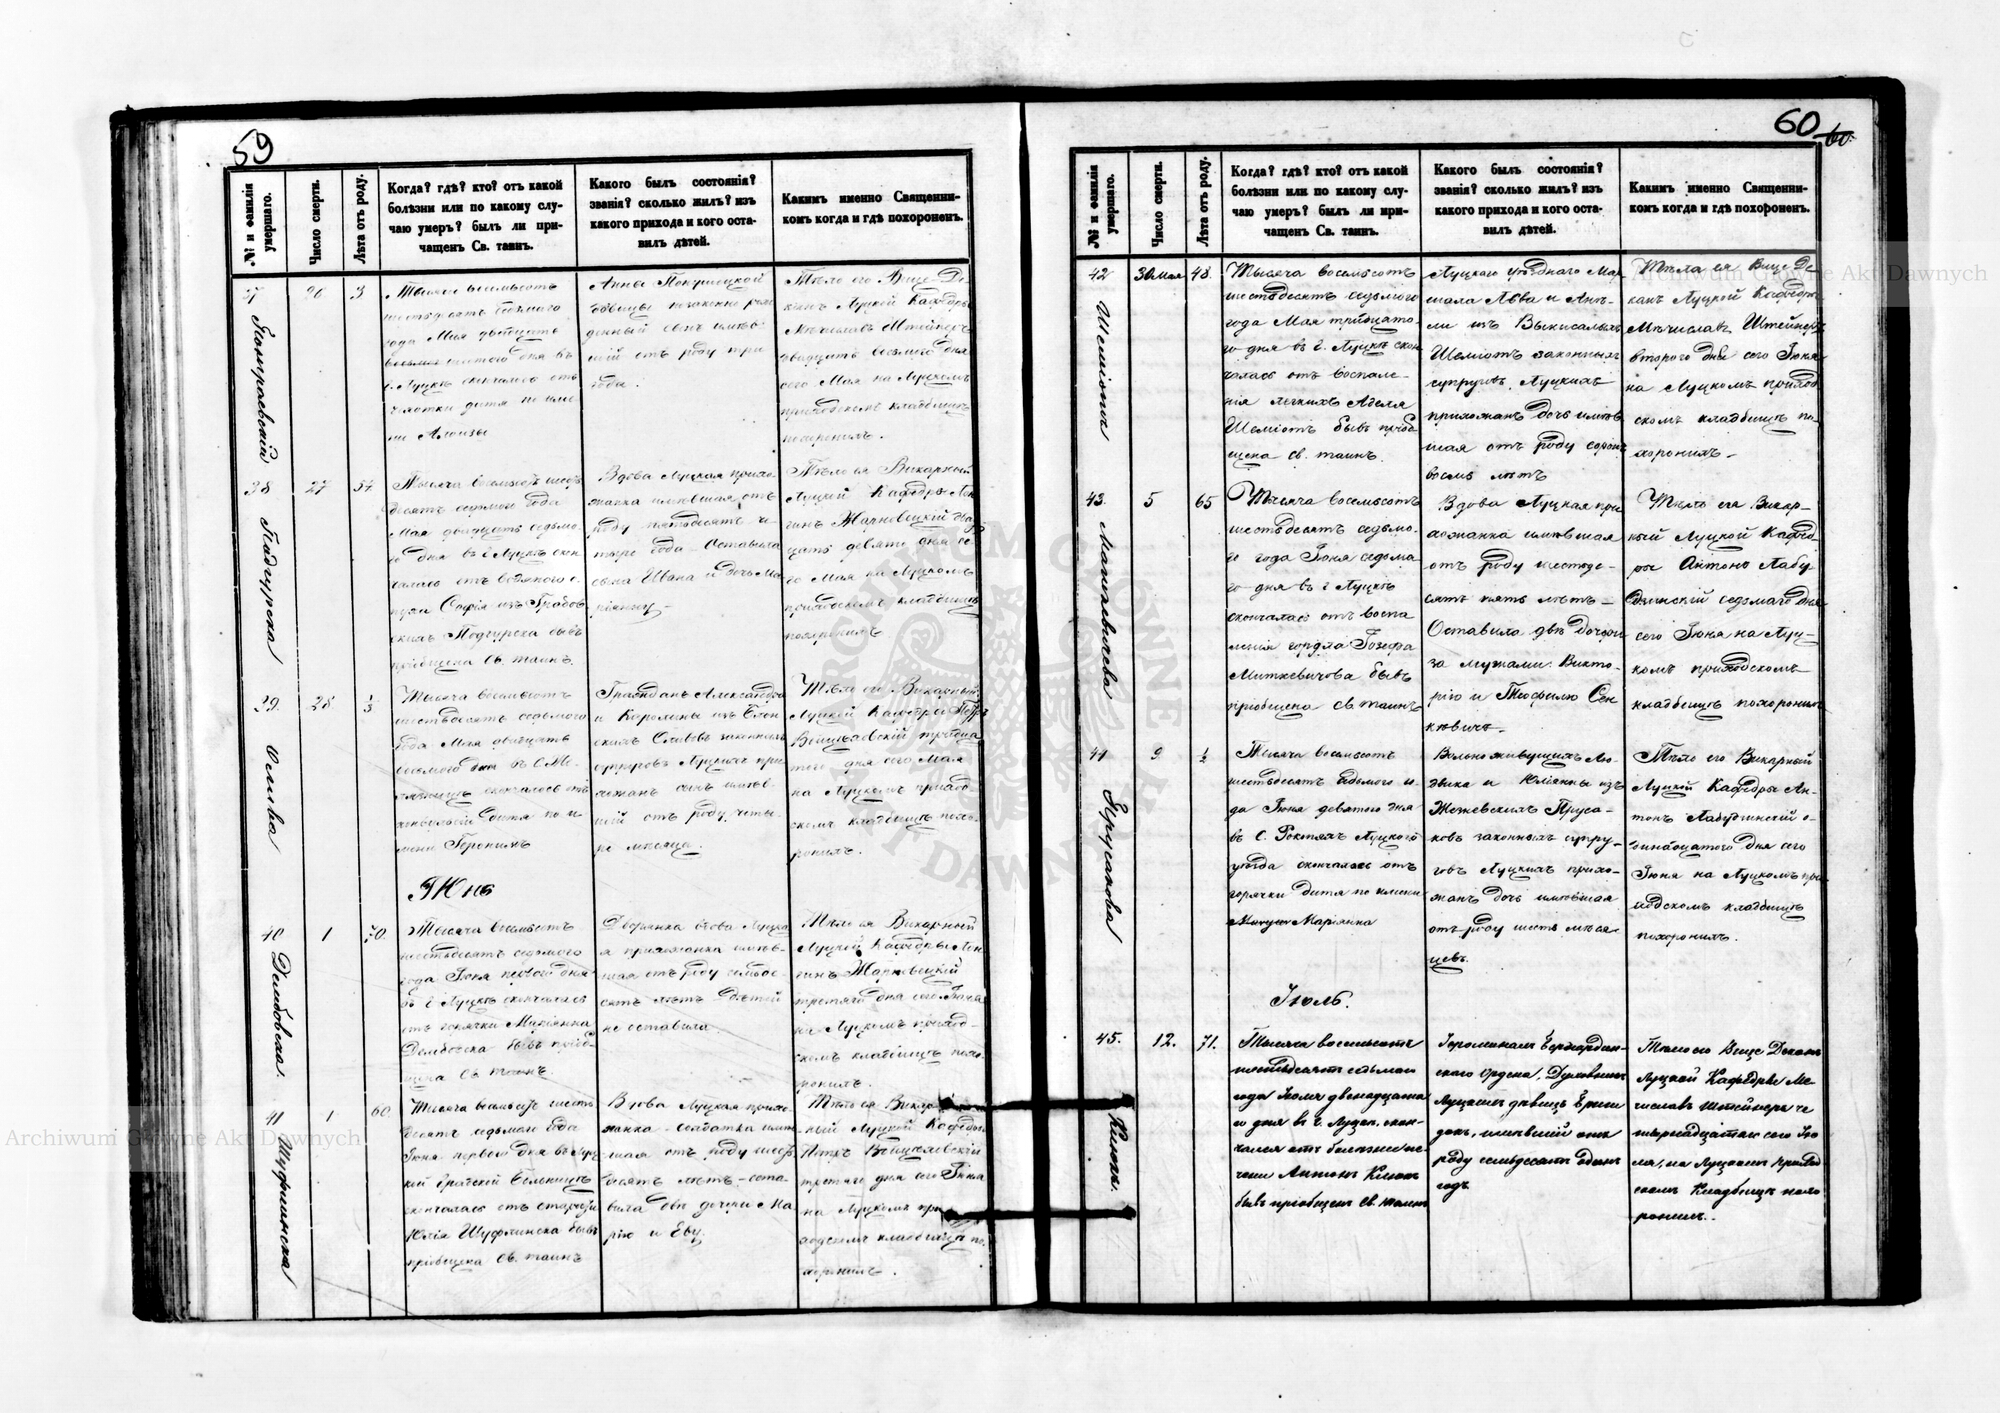 59
№ и фамилія умершаго.
Число смерти.
Лѣта отъ роду.
Когда? гдѣ? кто? отъ какой
болѣзни или по какому слу-
чаю умеръ? былъ ли при-
чащенъ Св. таинъ.
Какого былъ состоянія?
званія? сколько жилъ? изъ
какого прихода и кого оста-
вилъ дѣтей.
Какимъ именно Священни-
комъ когда и гдѣ похороненъ.
37
26
3
Тысяча восемьсотъ
шестьдесятъ седьмого
года Мая двадцать
шестого дня въ
г. Луцкѣ скончалось отъ
дитя по име-
ни Алоизы
Анны
дѣвицы незаконно рож-
денный сынъ имѣв-
шій отъ роду три
года.
Тѣло его Вице Де-
канъ Луцкой Кафедры
Мѣчиславъ Штейнеръ
двадцать восьмого дня
сего Мая на Луцкомъ
приходскомъ кладбищѣ
похоронилъ.
38 Подгурска
27
54
Тысяча восемьсотъ шесть
десятъ седьмого года
Мая двадцать седьмо-
го дня въ г. Луцкѣ скон
чалась отъ
Софія изъ Грабов
скихъ Подгурска бывъ
пріобщена Св. таинъ.
Вдова Луцкая прихо-
жанка имѣвшая отъ
роду пятьдесятъ че-
тыре года – Оставила
сына Ивана и дочь Ма-
ріанну –
Тѣло ея Викарный
Луцкой Кафедры Лон
гинъ Жарновецкій двад
цать девято дня се-
го Мая на Луцкомъ
приходскомъ кладбищѣ
похоронилъ.
39. Олива
28
1/3
Тысяча восемьсотъ
шестьдесятъ седьмого
года Мая двадцать
восьмого дня въ с.
скончалось отъ
дитя по и-
мени Геронимъ
Гражданъ Александра
и Каролины изъ
скихъ Оливовъ законныхъ
супруговъ Луцкихъ при
хожанъ сынъ имѣв-
шій отъ роду четы-
ре мѣсяца.
Тѣло его Викарный
Луцкой Кафедры Петръ
тридца
того дня сего Мая
на Луцкомъ приход-
скомъ кладбищѣ похо-
ронилъ.
Іюнь
40 Дембовска.
1
70.
Тысяча восемьсотъ
шестьдесятъ седьмого
года Іюня первого дня
въ г. Луцкѣ скончалась
отъ горячки Маріянна
Дембовска бывъ пріоб-
щена Св. таинъ.
Дворянка вдова Луцка
я прихожанка имѣв-
шая отъ роду семьде-
сятъ лѣтъ дѣтей
не оставила.
Тѣло ея Викарный
Луцкой Кафедры Лон
гинъ Жарновецкій
третяго дня сего Іюня
на Луцкомъ приход-
скомъ кладбищѣ похо-
ронилъ.
41 Шуфлинска
1
60.
Тысяча восемьсотъ шесть
десятъ седьмого года
Іюня первого дня въ Луц
кой градской больницѣ
скончалась отъ старости
Юлія Шуфлинска бывъ
пріобщена Св. таинъ
Вдова Луцкая прихо-
жанка – солдатка имѣв-
шая отъ роду шесть
десятъ лѣтъ – оста-
вила двѣ дочери Ма-
рію и Еву.
Тѣло ея Викар
ный Луцкой Кафедры
Петръ
третяго дня сего Іюня
на Луцкомъ при
ходскомъ кладбищѣ по-
хоронилъ.
60
60.
№ и фамилія умершаго.
Число смерти.
Лѣта отъ роду.
Когда? гдѣ? кто? отъ какой
болѣзни или по какому слу-
чаю умеръ? былъ ли при-
чащенъ Св. таинъ.
Какого былъ состоянія?
званія? сколько жилъ? изъ
какого прихода и кого оста-
вилъ дѣтей.
Какимъ именно Священни-
комъ когда и гдѣ похороненъ.
42
30 Мая
48.
Тысяча восемьсотъ
шестьдесятъ седьмого
года Мая тридцато-
го дня въ г. Луцкѣ скон
чалась отъ воспале-
нія легкихъ Аделя
Шеміотъ бывъ пріоб
щена св. таинъ.
Луцкого уѣздного Мар
шала Льва и
ли изъ
Шеміотъ законныхъ
супруговъ Луцкихъ
прихожанъ дочь имѣв
шая отъ роду сорокъ
восемь лѣтъ
Тѣло ея Вице Де-
канъ Луцкой Кафедры
Мѣчиславъ Штейнеръ
второго дня сего Іюня
на Луцкомъ приход
скомъ кладбищѣ по-
хоронилъ –
43
5
65
Тысяча восемьсотъ
шестьдесятъ седьмо-
го года Іюня седьма
го дня въ г. Луцкѣ
скончалась отъ воспа
ленія гордла Іозефа
Миткевичова бывъ
пріобщена св. таинъ
Вдова Луцкая при
хожанка имѣвшая
отъ роду шестьде-
сятъ пять лѣтъ –
Оставила двѣ дочери
за мужами: Викто-
рію и Теофилю Сен
кевичъ –
Тѣло ея Викар-
ный Луцкой Кафед-
ры Антонъ Лабу-
дзинскій седьмаго дня
сего Іюня на Луц-
комъ приходскомъ
кладбищѣ похоронилъ
44 Ярусакова
9
½
Тысяча восемьсотъ
шестьдесятъ седьмого го-
да Іюня девятого дня
въ с. Луцкого
уѣзда скончалась отъ
горячки дитя по имени
Маріянна
Вольно живущихъ Лю-
двика и Юліянны изъ
Жежевскихъ
ковъ законныхъ супру-
говъ Луцкихъ прихо-
жанъ дочь имѣвшая
отъ роду шесть мѣся-
цевъ.
Тѣло его Викарный
Луцкой Кафедры Ан-
тонъ Лабудзинскій о-
динадцатого дня сего
Іюня на Луцкомъ при
ходскомъ кладбищѣ
похоронилъ.
Іюль.
45. Клюкъ.
12.
71.
Тысяча восемьсотъ
шестьдесятъ седьмого
года Іюля двенадцата
го дня въ г. Луцкѣ скон-
чался отъ болезни пе-
чени Антонъ Клюкъ
бывъ пріобщенъ Св. таинъ
Іеромонахъ Бернардин-
скаго Ордена, Духовникъ
Луцкихъ дѣвицъ Бриги
докъ, имѣвшій отъ
роду семьдесятъ одинъ
годъ.
Тѣло его Вице Деканъ
Луцкой Кафедры Ме-
числавъ Штейнеръ че
тырнадцатаго сего Ію-
ля, на Луцкомъ приход
скомъ Кладбищѣ похо-
ронилъ.
Archiwum Główne Akt Dawnych